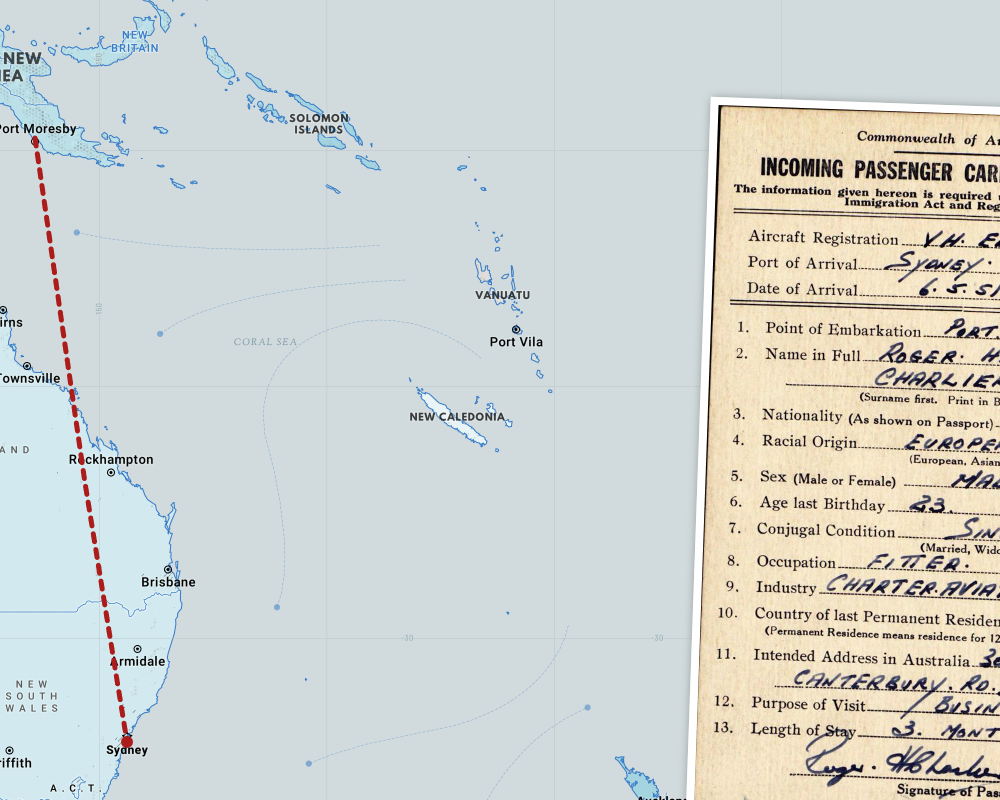 NEW
BRITAIN
NEW
EA
Port Moresby
SOLOMON
ISLANDS
150
VANUATU
Port Vila
irns
CORAL SEA
Townsville
NEW CALEDONIA
AND
Rockhampton
Brisbane
-30
-30
Armidale
NEW
SOUTH
WALES
Sydney
riffith
A.C.T.
Auckland
Commonwealth of Au
INCOMING PASSENGER CAR
The information given hereon is required u
Immigration Act and Reg
Aircraft Registration VH. E
Port of Arrival SYDNEY.
Date of Arrival 6.5.51
1. Point of Embarkation PORT.
2. Name in Full ROGER. H.
CHARLIER
(Surname first. Print in B
3. Nationality (As shown on Passport)
4. Racial Origin EUROPE
(European, Asian
5. Sex (Male or Female) MAL
6. Age last Birthday 23.
7. Conjugal Condition SIN
(Married, Wido
8. Occupation FITTER.
9. Industry CHARTER.AVIAT
10. Country of last Permanent Residen
(Permanent Residence means residence for 12
11. Intended Address in Australia 30
CANTERBURY. RD.
12. Purpose of Visit BUSIN
13. Length of Stay 3. MONT
Roger. H Charlier
Signature of Pass